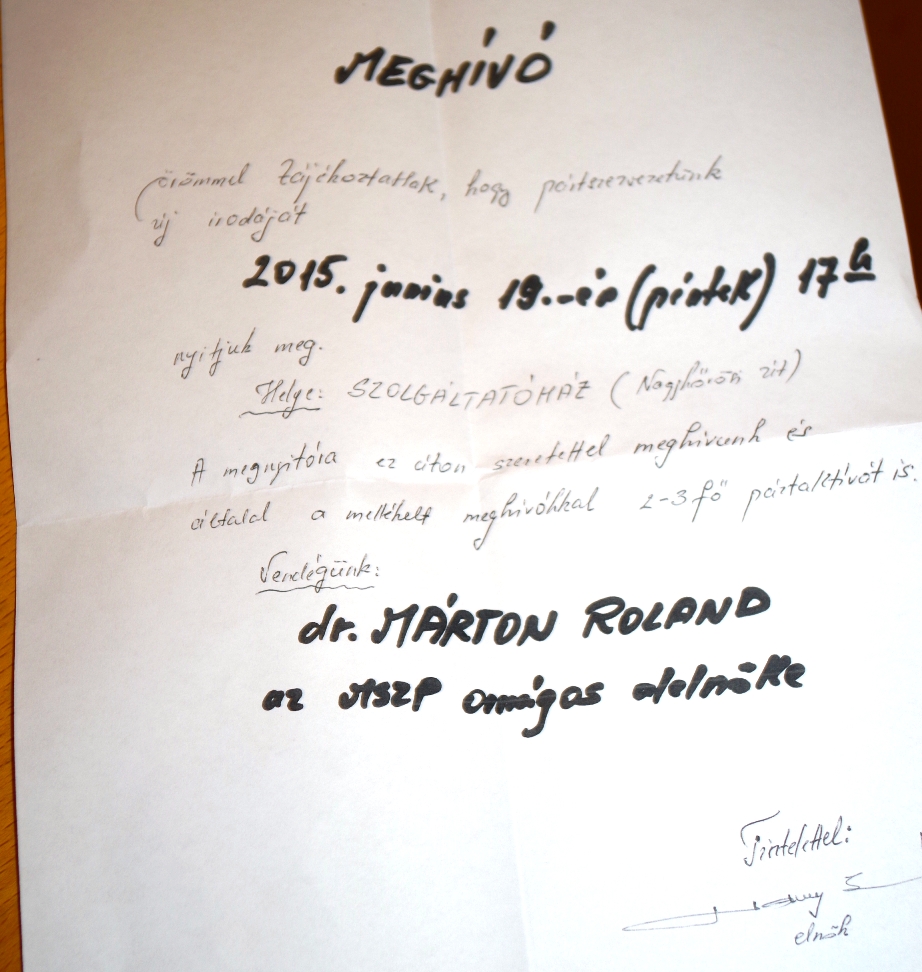 MEGHÍVÓ
Örömmel tájékoztatlak, hogy pártszervezetünk
új irodáját
2015. június 19.-én (péntek) 17h
nyitjuk meg.
Helye: SZOLGÁLTATÓHÁZ (Nagykőrösi út)
A megnyitóra ez úton szeretettel meghívunk és
általad a mellékelt meghívókkal 2-3 fő pártaktívát is.
Vendégünk:
dr. MÁRTON ROLAND
az MSZP országos alelnöke
Tisztelettel:
elnök